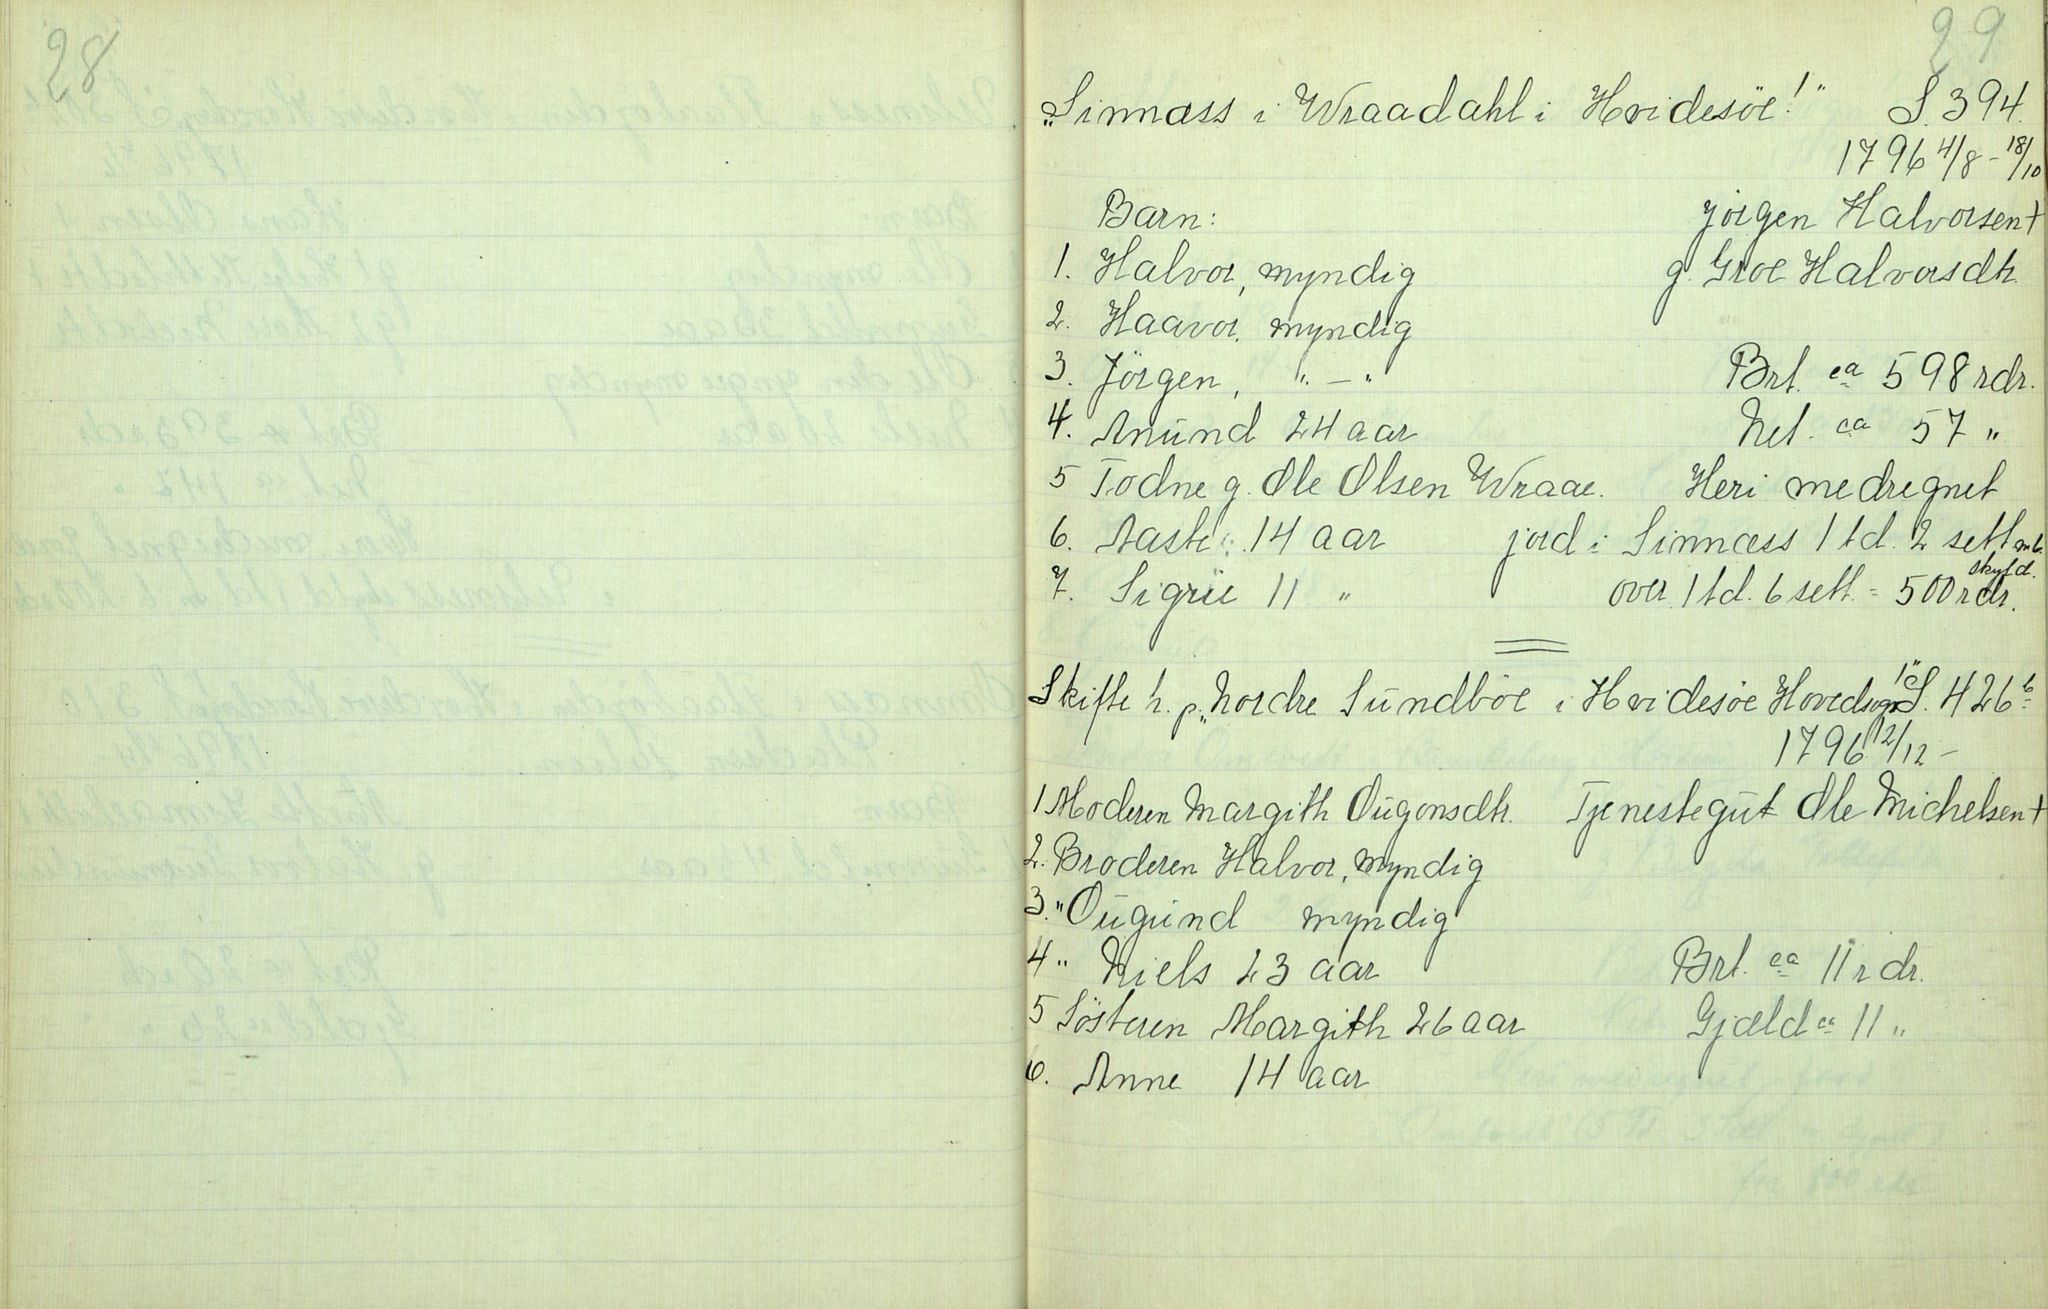 28
29
"Sinnæss i Wraadahl i Hvidesöe!" S. 394.
1796 4/8 - 18/10
Barn: Jörgen Halvorsen +
1. Halvor, myndig g. Groe Halvorsdtr.
2. Haavor, myndig
3. Jörgen, " — " Brt. ca 598 rdr.
4. Anund 24 aar Net. ca 57 "
5 Todne g. Ole Olsen Wraae. Heri medregnet
6. Aaste 14 aar jord i Sinnæss 1 td. 2 sett
7. Sigrie 11 " over 1 td. 6 sett. = 500 rdr.
skyld.
Skifte h. p. "Nordre Sundböe i Hvidesöe Hovedsogn!" S. 426 b
1796 12/12 —
1 Moderen Margith Ougonsdtr. Tjenestegut Ole Michelsen +
2. Broderen Halvor, myndig
3. " Ougund myndig
4 " Niels 23 aar Brt. ca 11 rdr.
5 Sösteren Margith 26 aar Gjæld ca 11 "
6. Anne 14 aar